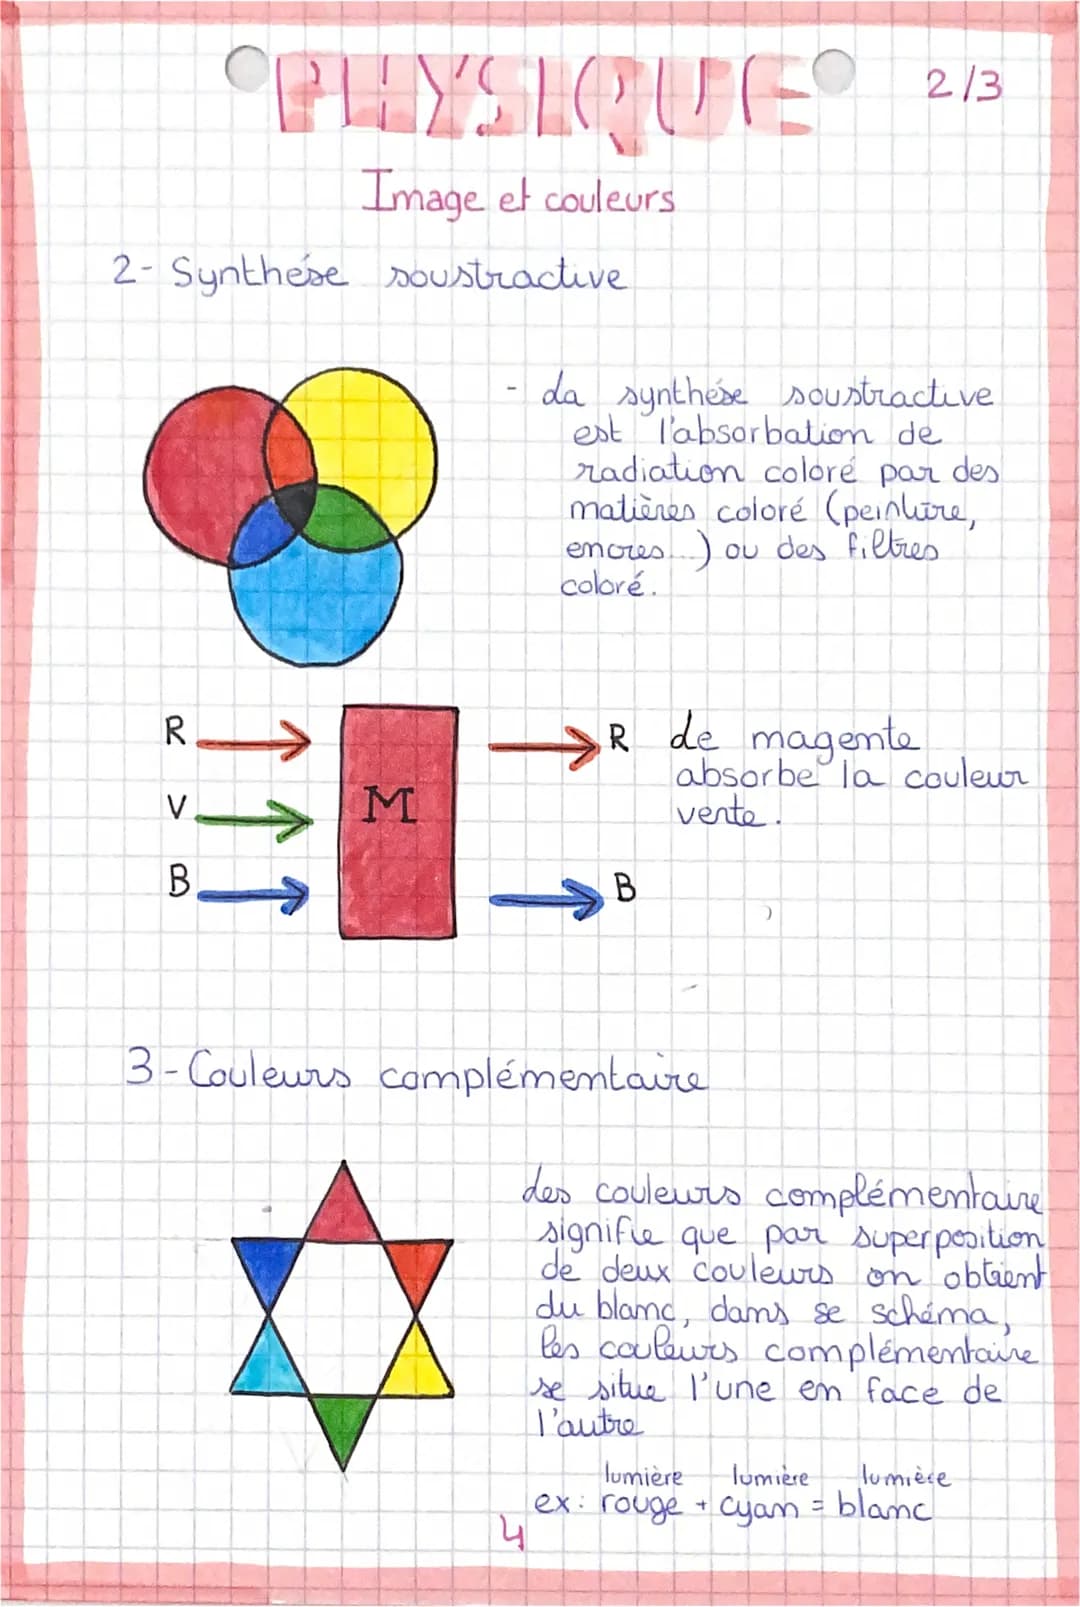 PHYSIQUE
2/3
Image et couleurs
2- Synthése soustractive
- La synthése soustractive
est l'absorbation de
radiation coloré par des
matières coloré (peinture,
encres...) ou des filtres
coloré.
R
R
V
M
B
B
Le magente
absorbe la couleur
verte.
3- Couleurs complémentaire
des couleurs complémentaire
signifie que par superposition
de deux couleurs on obtient
du blanc, dans se schéma,
les couleurs complémentaire
se situe l'une en face de
l'autre
lumière lumière lumière
ex: rouge + cyan = blanc
4